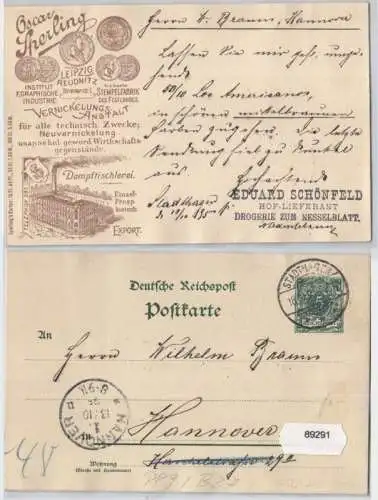 Oscar
Sperling
LEIPZIG
REUDNITZ
INSTITUT
F. GRAPHISCHE
INDUSTRIE.
STEMPELFABRIK
DES FESTLANDES.
VERNICKELUNGS
ANSTALT
für alle technisch. Zwecke;
Neuvernickelung
unansehnl. geword. Wirthschafts
gegenstände.
Dampftischlerei.
EXPORT.
Herrn W. Braunn, Hannover
Lassen Sie mir gefl. umge-
hend
50/10 Los Americanos,
in schönen mittelbraunen
Farben zugehen. Die letzte
Sendung fiel zu dunkel
aus
Stadthagen
EDUARD SCHÖNFELD
HOF-LIEFERANT
DROGERIE ZUM NESSELBLATT,
Deutsche Reichspost
Postkarte
STADTHAGEN
An
Herrn Wilhelm Braunn
HANNOVER
in
Hannover
Wohnung
(Straße und Hausnummer)
89291